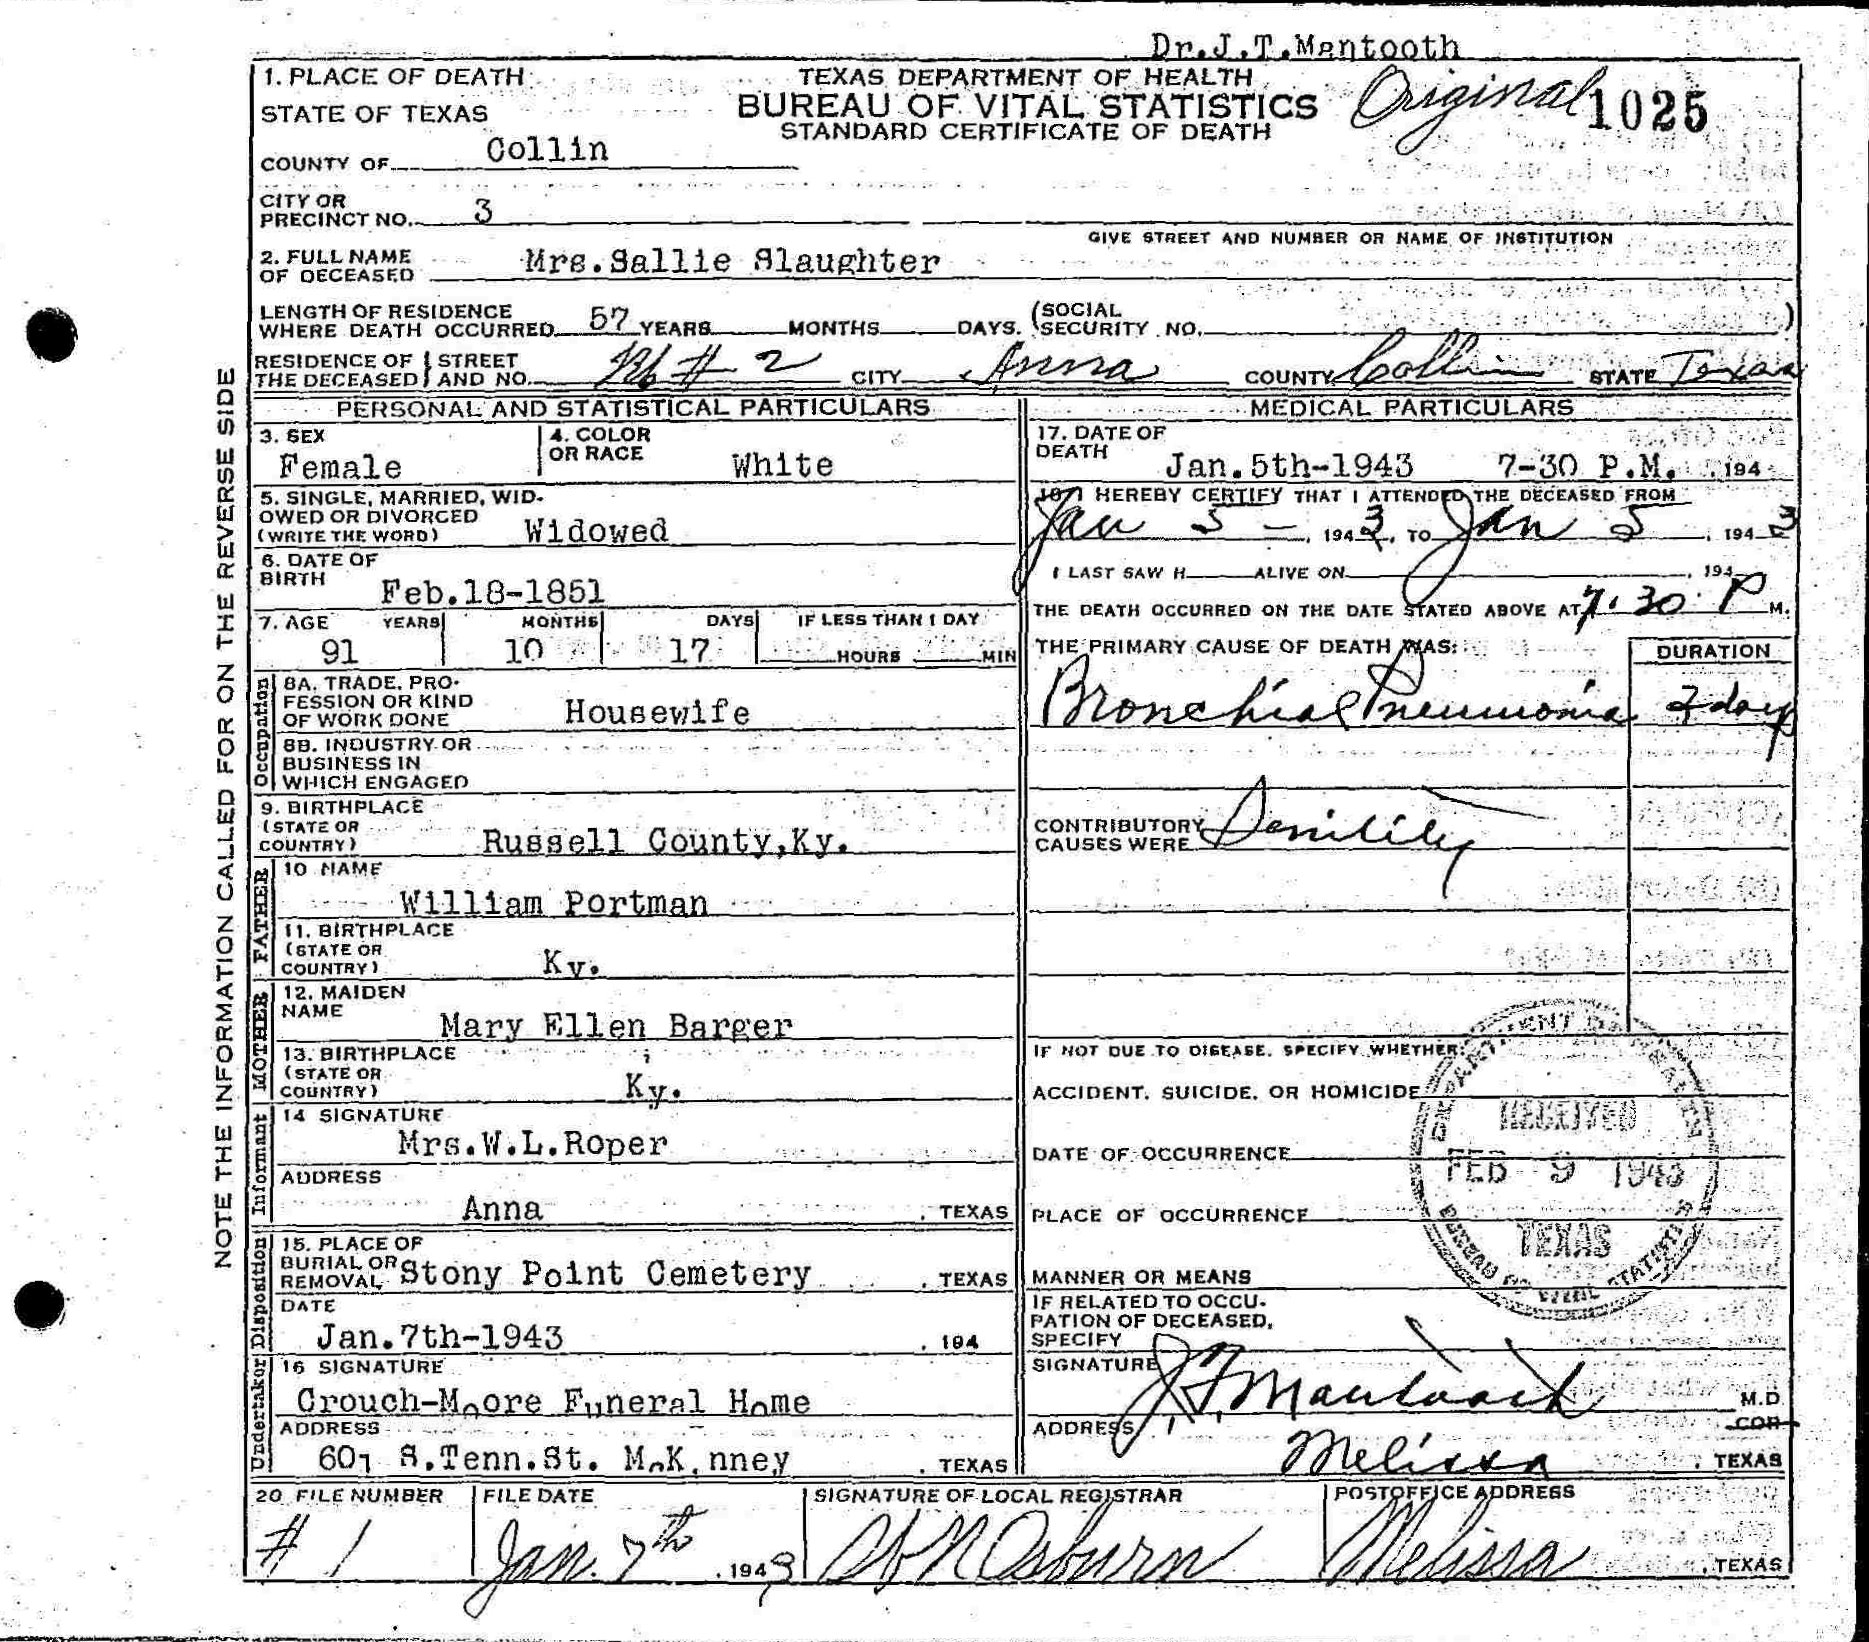 Dr.J.T.Mantooth
1. PLACE OF DEATH
STATE OF TEXAS
COUNTY OF Collin
TEXAS DEPARTMENT OF HEALTH
BUREAU OF VITAL STATISTICS
STANDARD CERTIFICATE OF DEATH
Original 1025
CITY OR
PRECINCT NO. 3
GIVE STREET AND NUMBER OR NAME OF INSTITUTION
2. FULL NAME
OF DECEASED Mrs.Sallie Slaughter
LENGTH OF RESIDENCE
WHERE DEATH OCCURRED 57 YEARS MONTHS DAYS. (SOCIAL
SECURITY NO. )
RESIDENCE OF STREET
THE DECEASED AND NO. # 2 CITY Anna COUNTY Collin STATE Texas
PERSONAL AND STATISTICAL PARTICULARS
3. SEX
Female
4. COLOR
OR RACE White
5. SINGLE, MARRIED, WID-
OWED OR DIVORCED
(WRITE THE WORD) Widowed
6. DATE OF
BIRTH Feb.18-1851
7. AGE YEARS MONTHS DAYS IF LESS THAN 1 DAY
91 10 17 HOURS MIN
Occupation
8A. TRADE, PRO-
FESSION OR KIND
OF WORK DONE Housewife
8B. INDUSTRY OR
BUSINESS IN
WHICH ENGAGED
9. BIRTHPLACE
(STATE OR
COUNTRY) Russell County,Ky.
FATHER
10 NAME
William Portman
11. BIRTHPLACE
(STATE OR
COUNTRY) Ky.
MOTHER
12. MAIDEN
NAME
Mary Ellen Barger
13. BIRTHPLACE
(STATE OR
COUNTRY) Ky.
Informant
14 SIGNATURE
Mrs.W.L.Roper
ADDRESS
Anna , TEXAS
Disposition
15. PLACE OF
BURIAL OR
REMOVAL Stony Point Cemetery , TEXAS
DATE
Jan.7th-1943 , 194
Undertaker
16 SIGNATURE
Crouch-Moore Funeral Home
ADDRESS
601 S.Tenn.St. McKinney , TEXAS
MEDICAL PARTICULARS
17. DATE OF
DEATH Jan.5th-1943 7-30 P.M. , 194
18. I HEREBY CERTIFY THAT I ATTENDED THE DECEASED FROM
Jan 3 - , 1943, TO Jan 5 , 1943
I LAST SAW H ALIVE ON , 194
THE DEATH OCCURRED ON THE DATE STATED ABOVE AT 7:30 P M.
THE PRIMARY CAUSE OF DEATH WAS: DURATION
Bronchial Pneumonia days
CONTRIBUTORY
CAUSES WERE Senility
IF NOT DUE TO DISEASE, SPECIFY WHETHER:
ACCIDENT, SUICIDE, OR HOMICIDE
DATE OF OCCURRENCE
PLACE OF OCCURRENCE
MANNER OR MEANS
IF RELATED TO OCCU-
PATION OF DECEASED,
SPECIFY
SIGNATURE J.T. Mantooth M.D
COR
ADDRESS Melissa , TEXAS
DEPARTMENT OF HEALTH
RECEIVED
FEB 9 1943
TEXAS
BUREAU OF VITAL STATISTICS
20 FILE NUMBER FILE DATE SIGNATURE OF LOCAL REGISTRAR POSTOFFICE ADDRESS
# 1 Jan. 7th , 1943 Osburn Melissa , TEXAS
NOTE THE INFORMATION CALLED FOR ON THE REVERSE SIDE